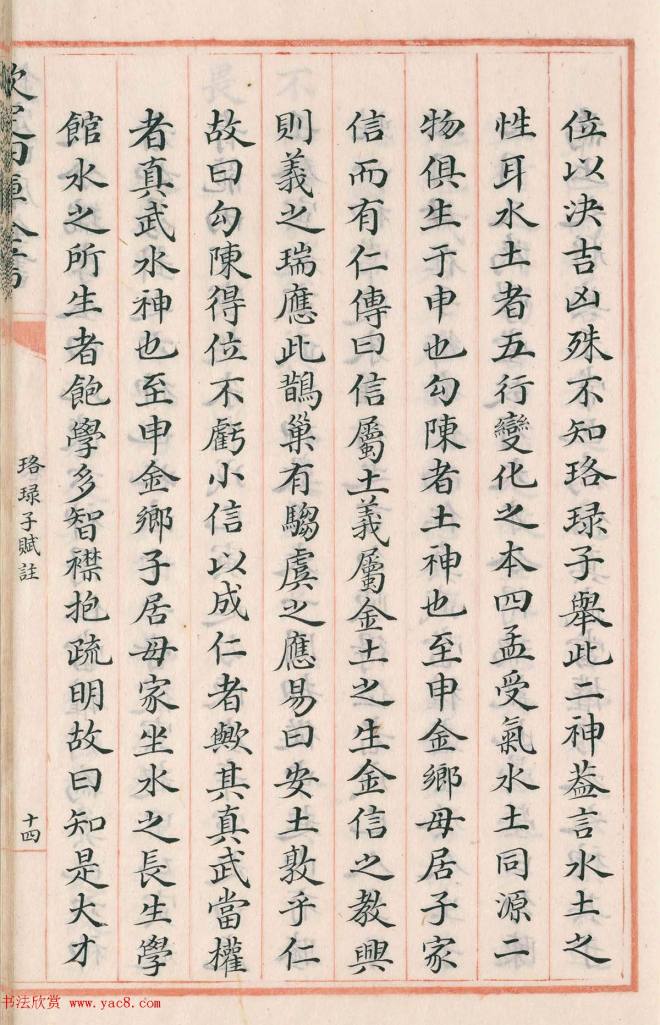 位以决吉凶殊不知珞琭子舉此二神葢言水土之
性耳水土者五行變化之本四孟受氣水土同源二
物俱生于申也勾陳者土神也至申金鄉母居子家
信而有仁傳曰信屬土義屬金土之生金信之教興
則義之瑞應此鵲巢有騶虞之應易曰安土敦乎仁
故曰勾陳得位不虧小信以成仁者歟其真武當權
者真武水神也至申金鄉子居母家坐水之長生學
館水之所生者飽學多智襟抱疏明故曰知是大才
欽定四庫全書
珞琭子賦註
十四
书法欣赏 www.yac8.com